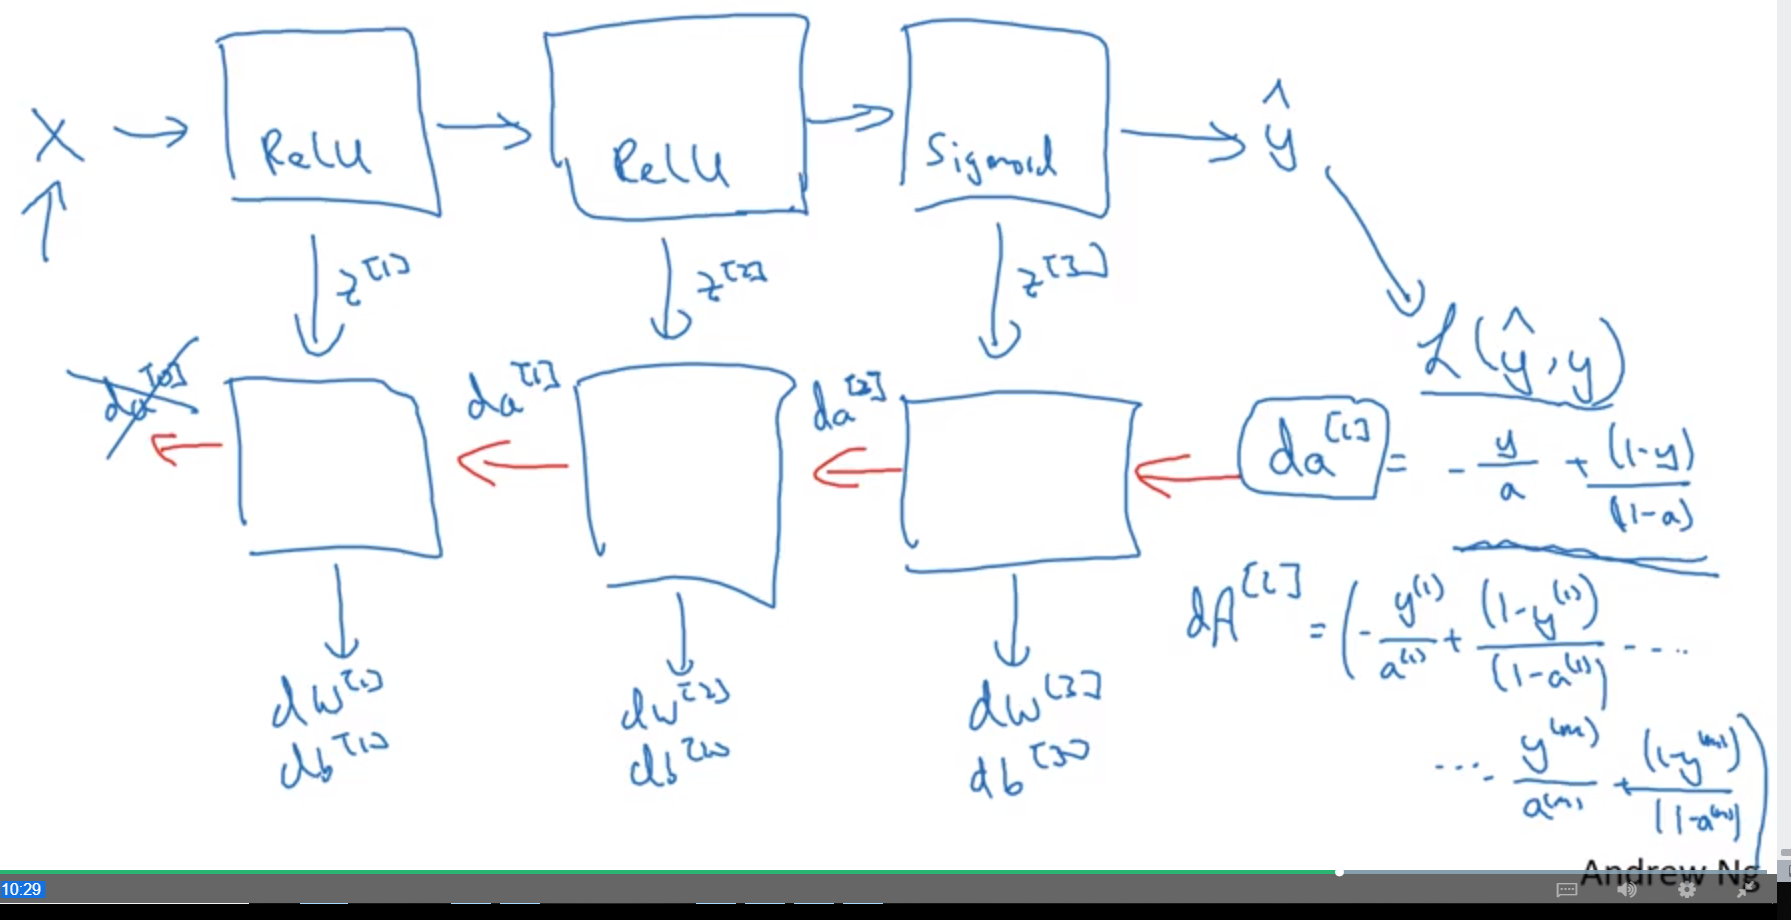 X → ReLU → ReLU → Sigmoid → ŷ
z^[1] z^[2] z^[3]
L(ŷ, y)
da^[0] da^[1] da^[2] da^[l] = - y/a + (1-y)/(1-a)
dA^[l] = (- y^(1)/a^(1) + (1-y^(1))/(1-a^(1)) ....
.... - y^(m)/a^(m) + (1-y^(m))/(1-a^(m)))
dw^[1] dw^[2] dw^[3]
db^[1] db^[2] db^[3]
Andrew Ng
10:29